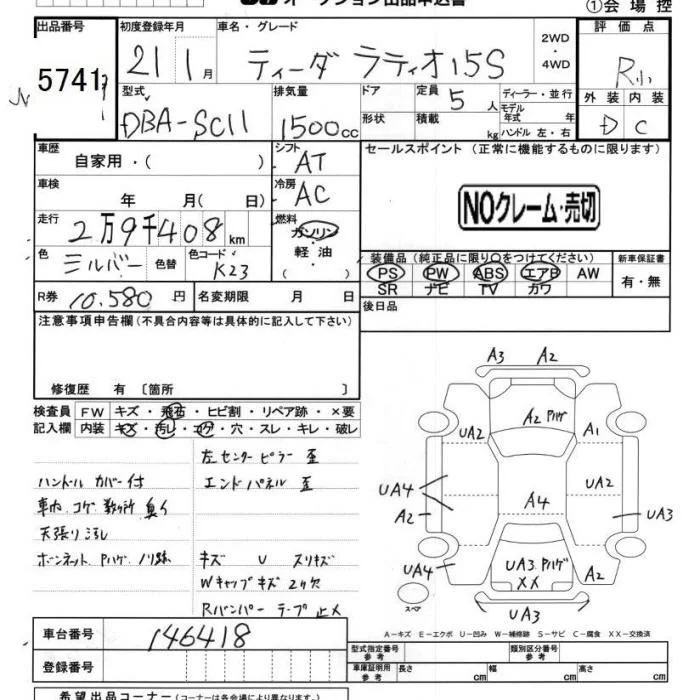 オークション出品申込書
①会場控
出品番号 初度登録年月 車名・グレード 2WD・4WD 評価点
5741 21 1月 ティーダ ラティオ 15S R
型式 排気量 ドア 定員 5人 ディーラー・並行 外装 内装
DBA-SC11 1500cc 形状 積載 kg モデル年式 年 ハンドル 左・右 D C
車歴 自家用・( ) シフト AT セールスポイント(正常に機能するものに限ります)
車検 年 月( 日) 冷房 AC NOクレーム・売切
走行 2万9千408km 燃料 ガソリン
軽油
( ・ )
色 シルバー 色替 色コード K23 装備品(純正品に限り○をつけてください) 新車保証書
PS PW ABS エアB AW 有・無
SR ナビ TV カワ
R券 10,580円 名変期限 月 日 後日品
注意事項申告欄(不具合内容等は具体的に記入して下さい)
修復歴 有 〔箇所 〕
検査員 FW キズ・飛石・ヒビ割・リペア跡・×要
記入欄 内装 キズ・汚レ・コゲ・穴・スレ・キレ・破レ
左センターピラー 歪
ハンドルカバー付 エンドパネル 歪
車内 コゲ 数ヶ所 臭イ
天張り汚レ
ボーンネット Pハゲ ノリ跡 キズ U スリキズ
Wキャップキズ 2ヶ欠
Rバンパー テープ止メ
A3 A2
A2 Pハゲ
UA2 A1
UA4 UA2
A2 A4 UA3
UA4 UA3 Pハゲ XX A2
スペア UA3
A−キズ E−エクボ U−凹み W−補修跡 S−サビ C−腐食 XX−交換済
車台番号 146418
型式指定番号 参考 類別区分番号 参考
登録番号 車庫証明用 参考 長さ cm 幅 cm 高さ cm
希望出品コーナー(コーナーは各会場により異なります。)